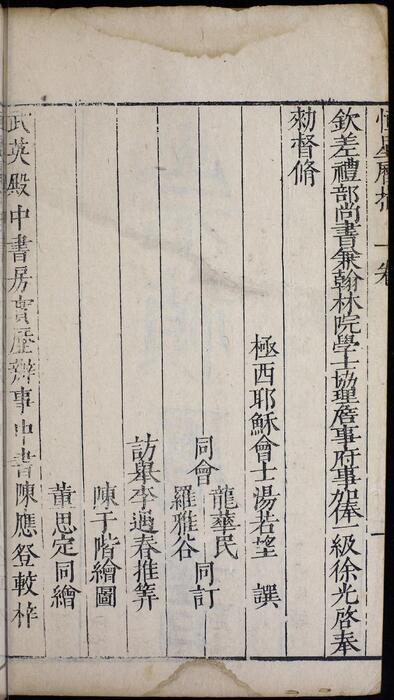 恒星曆指 一卷
欽差禮部尚書兼翰林院學士協理詹事府事加俸一級徐光啓奉
勑督脩
極西耶穌會士湯若望 譔
同會 龍華民 羅雅谷 同訂
訪舉李遇春推筭
陳于階繪圖
董思定同繪
武英殿中書房實歷辦事中書陳應登較梓
一